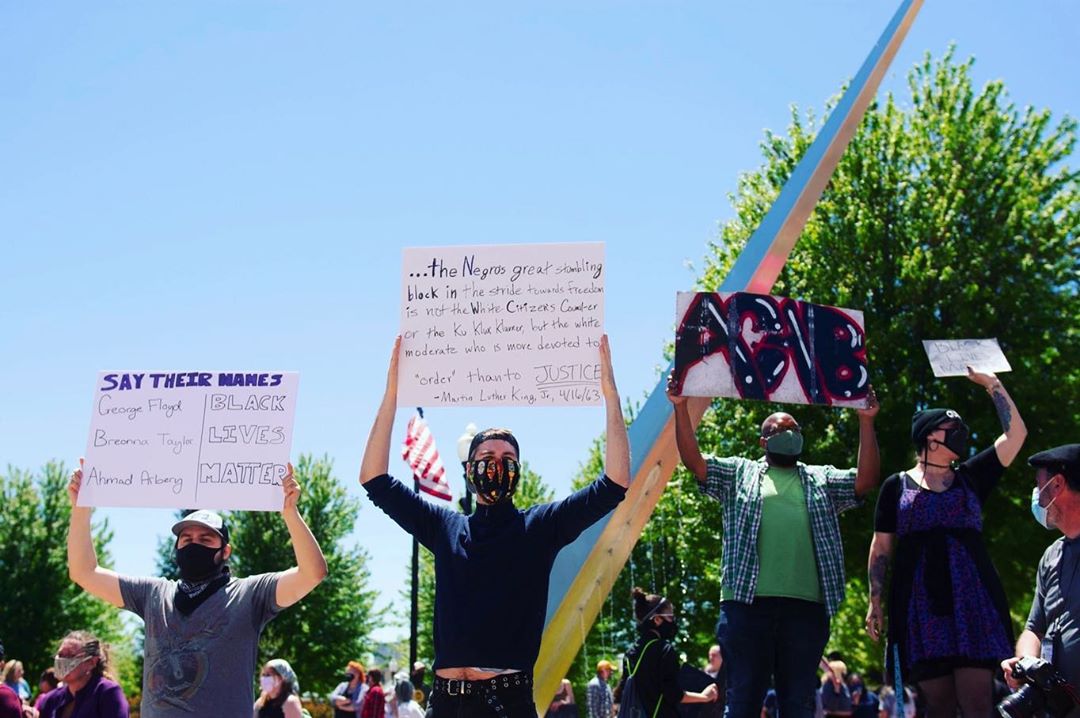 SAY THEIR NAMES
George Floyd
Breonna Taylor
Ahmad Arberg
BLACK
LIVES
MATTER
...the Negros great stumbling
block in the stride towards freedom
is not the White Citizens Counciler
or the Ku Klux Klanner, but the white
moderate who is more devoted to
"order" than to JUSTICE
-Martin Luther King, Jr, 4/16/63
ACAB
BLACK
LIVES
MATTER